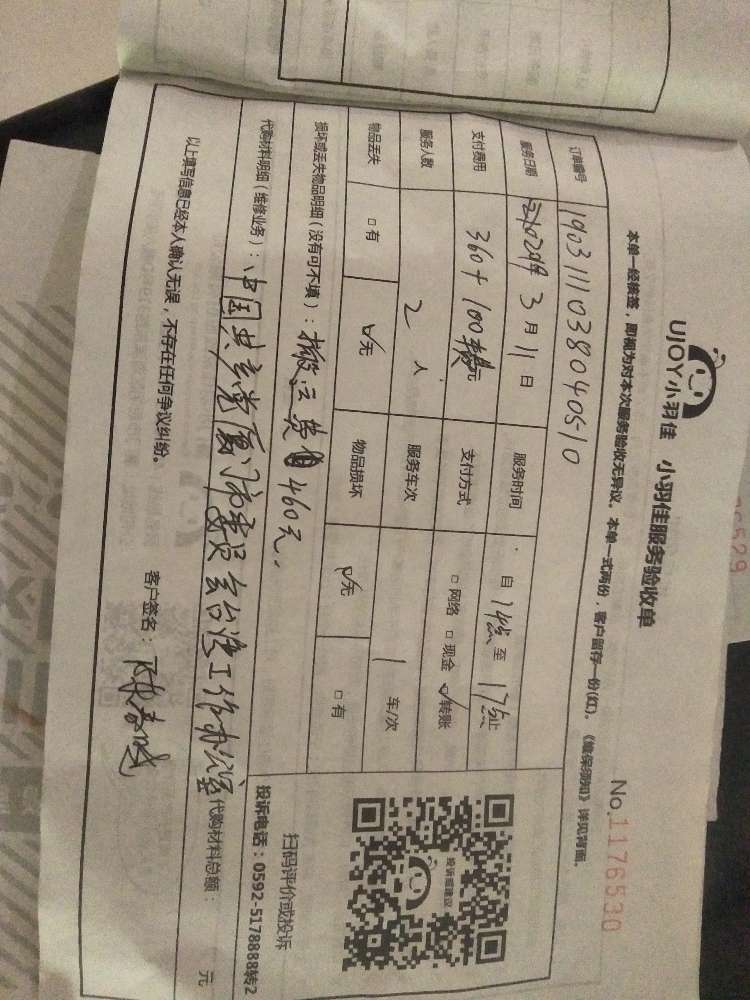 UJOY小羽佳 小羽佳服务验收单
No.1176530
本单一经核签，即视为对本次服务验收无异议。本单一式两份，客户留存一份(红)。《维保须知》详见背面。
订单编号 1903111038040510
服务日期 2019年 3 月 11 日 服务时间 自 14点 至 17点止
支付费用 360+100楼费元 支付方式 □ 网络 □ 现金 ☑转账
服务人数 2 人 服务车次 1 车/次
物品丢失 □ 有 ☑无 物品损坏 ☑无 □ 有
损坏或丢失物品明细（没有可不填）：搬运费 460元.
代购材料明细（维修业务）：中国共产党厦门市委员会台港工作办公室 代购材料总额： 元
以上填写信息已经本人确认无误，不存在任何争议纠纷。
客户签名：
投诉或建议
扫码评价或投诉
投诉电话：0592-5178888转2
76529